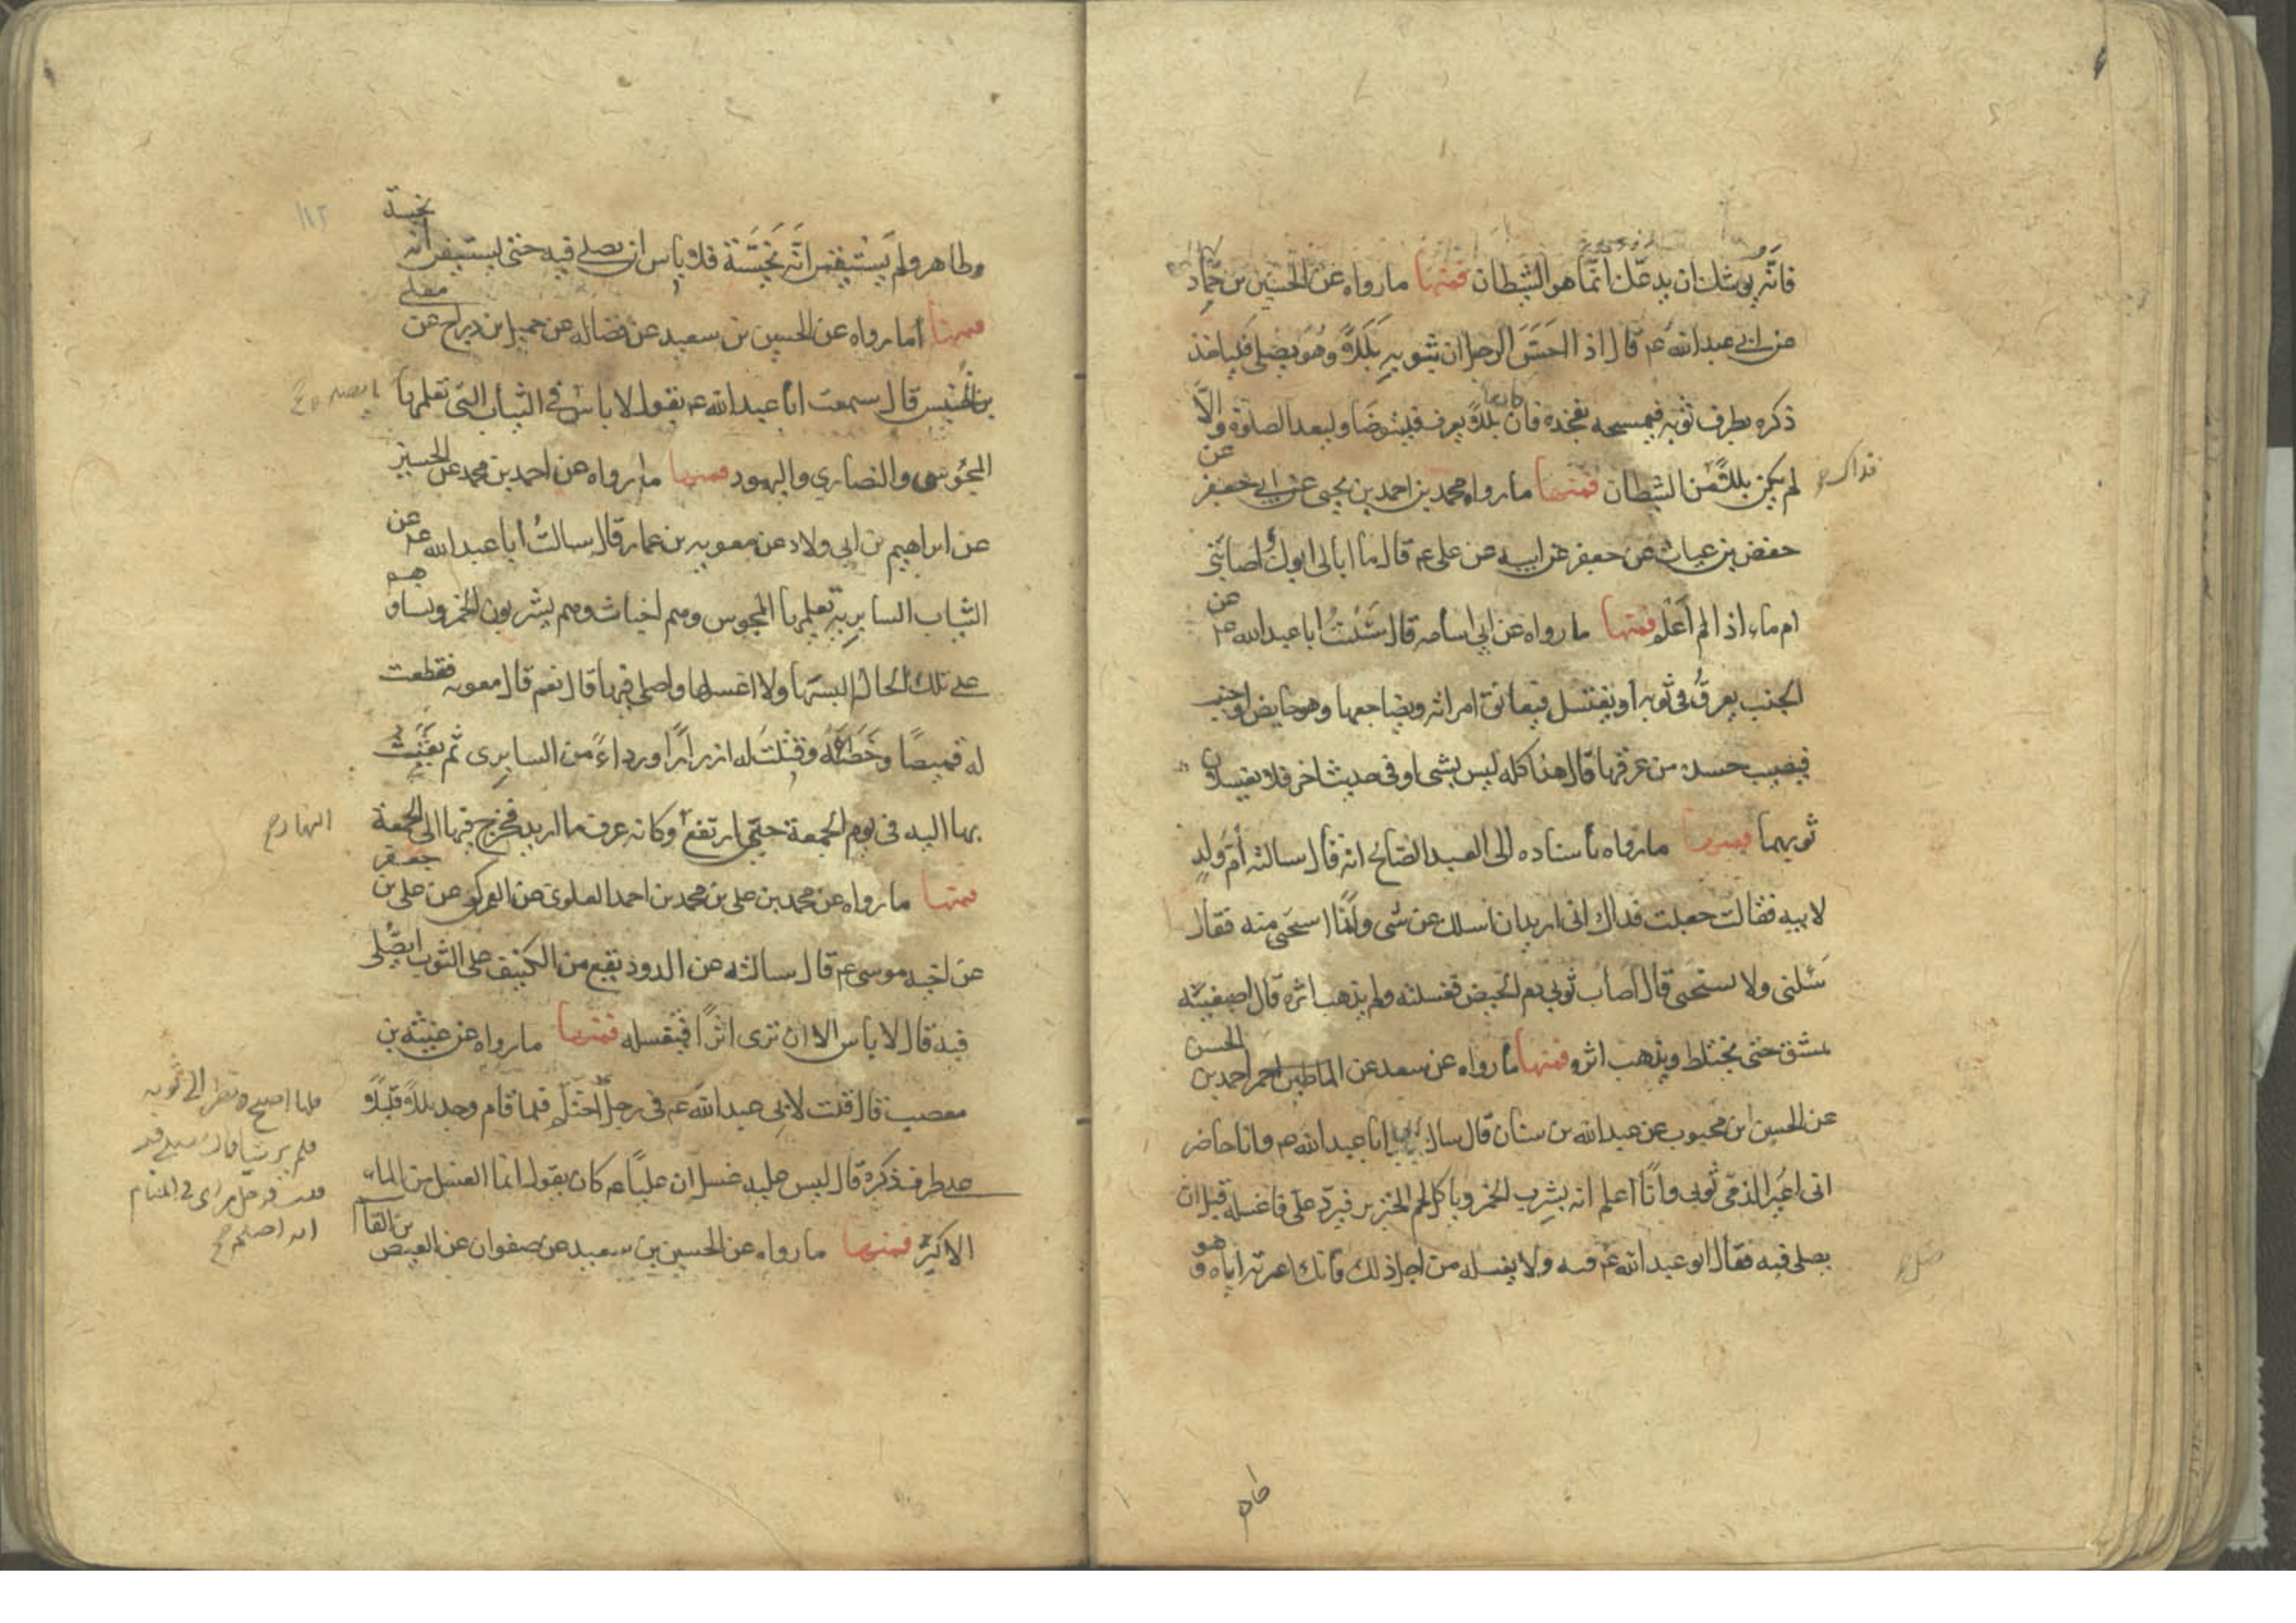 فانّه يوشك ان يدعك انّما هو الشيطان فمنها ما رواه عن الحسين بن حماد
عن ابى عبد الله عم قال اذا احسّ الرجل ان بثوبه بللاً وهو يصلى فلياخذ
ذكره بطرف ثوبه فيمسحه بفخذه فان كان بللاً يعرف فليتوضا وليعد الصلوة والّا
لم يكن بللاً فمن الشيطان فمنها ما رواه محمد بن احمد بن يحيى عن ابى جعفر عن
حفص بن غياث عن جعفر عن ابيه عن على عم قال ما ابالى ابول اصابنى
ام ماء اذا لم اعلم فمنها ما رواه عن ابى اسامه قال سئلت ابا عبد الله عم عن
الجنب يعرق فى ثوبه او يغتسل فيعانق امراته ويضاجعها وهو حايض او جنب
فيصيب جسده من عرقها قال هذا كله ليس بشى وفى حديث اخر فلا يغسلان
ثوبهما فمنها ما رواه باسناده الى العبد الصالح انه قال سالته أم ولدٍ
لابيه فقالت جعلت فداك انى اريد ان اسلك عن شى وانا استحيى منه فقال
سَئلنى ولا تستحيى قال اصاب ثوبى دم الحيض فغسلته ولم يذهب اثره قال اصبغيه
بمشق حتى يختلط ويذهب اثره فمنها ما رواه عن سعد عن احمد بن
الحسن
عن الحسن بن محبوب عن عبد الله بن سنان قال سال ابى ابا عبد الله عم وانا حاضر
انى اعير الذمى ثوبى وانا اعلم انه يشرب الخمر وياكل لحم الخنزير فيردّ علىّ فاغسله قبل ان
يصلى فيه فقال ابو عبد الله عم فيه ولا يغسله من اجل ذلك فانك اعرته اياه وهو
وطاهر ولم يستيقن انّه نجّسته فلا باس ان يصلى فيه حتى يستيقن انه
نجسه
فمنها ما رواه عن الحسين بن سعيد عن فضاله عن جميل بن دراج عن
معلى
بن خنيس قال سمعت ابا عبد الله عم يقول لا باس فى الثياب التى تعلمها
المجوس والنصارى واليهود فمنها ما رواه عن احمد بن محمد عن الحسين
عن ابراهيم بن ابى ولاد عن معويه بن عمار قال سالتُ ابا عبد الله عم عن
الثياب السابريه تعلمها المجوس وهم اخباث وهم يشربون الخمر ونساوهم
على تلك الحال البسها ولا اغسلها واصلى فيها قال نعم قال معويه فقطعت
له قميصًا وخطته وفتلت له ازرارًا ورداءً من السابرى ثم بعثت
بها اليه فى يوم الجمعة حتى ارتفع وكانه عرف ما اريد فخرج فيها الى الجمعة
النهار ح
فمنها ما رواه عن محمد بن على بن محمد بن احمد العلوى عن العمركى عن على بن
جعفر
عن اخيه موسى عم قال سالته عن الدود يقع من الكنيف على الثوب ايصلّى
فيه قال لا باس الا ان ترى اثرًا فيغسله فمنها ما رواه عن عنبسه بن
مصعب قال قلت لابى عبد الله عم فى رجل احتلم فلما قام وجد بللاً قليلاً
على طرف ذكره قال ليس عليه غسل ان علياً عم كان يقول انما الغسل من الماء
الاكبر فمنها ما رواه عن الحسين بن سعيد عن صفوان عن العيص
بن القا
فلما اصبح نظر الى ثوبه
فلم ير شيا قال